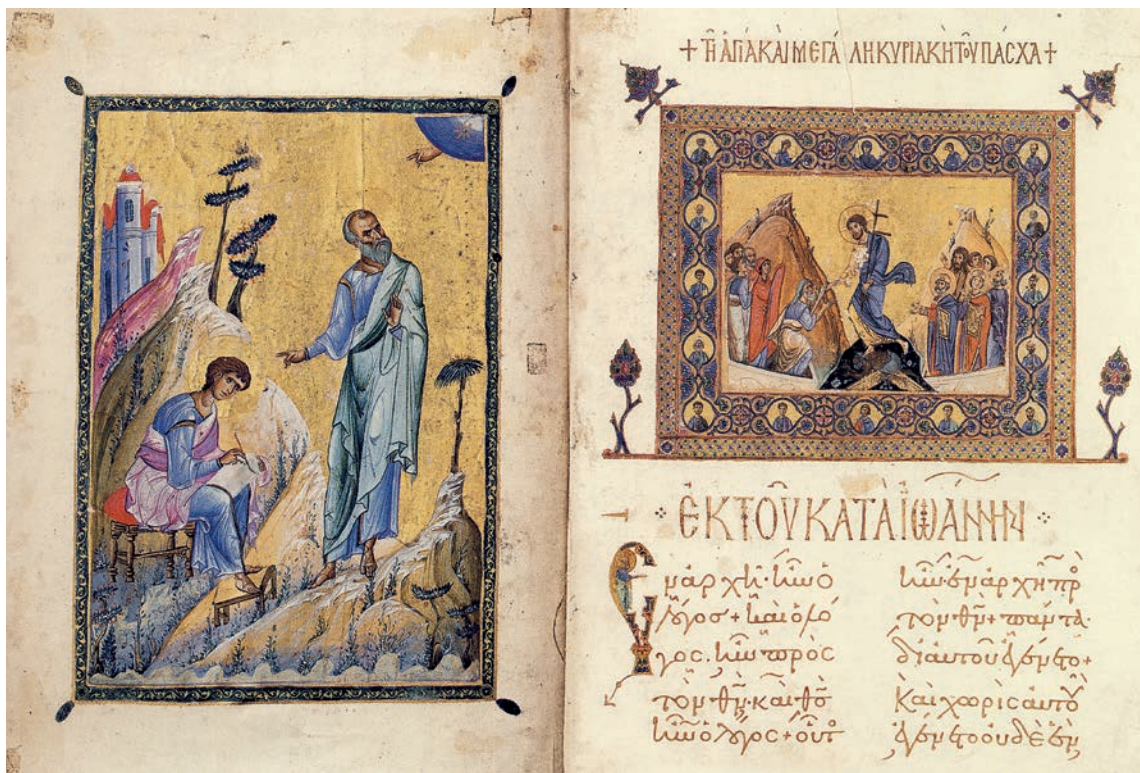 + ΤΗ ΑΓΙΑ ΚΑΙ ΜΕΓΑΛΗ ΚΥΡΙΑΚΗ ΤΟΥ ΠΑϹΧΑ +
ἘΚ ΤΟΥ ΚΑΤΑ ἸΩΑΝΝΗΝ
Ἐν ἀρχῆ· ἦν ὁ
λόγος + καὶ ὁ λό
γος. ἦν πρὸς
τὸν θν· καὶ θς
ἦν ὁ λόγος + οὗτ
ἦν ἐν ἀρχῆ πρ
τὸν θν + πάντα
δι αὐτοῦ ἐγένετο +
καὶ χωρὶς αὐτοῦ
ἐγένετο οὐδὲ ἕν